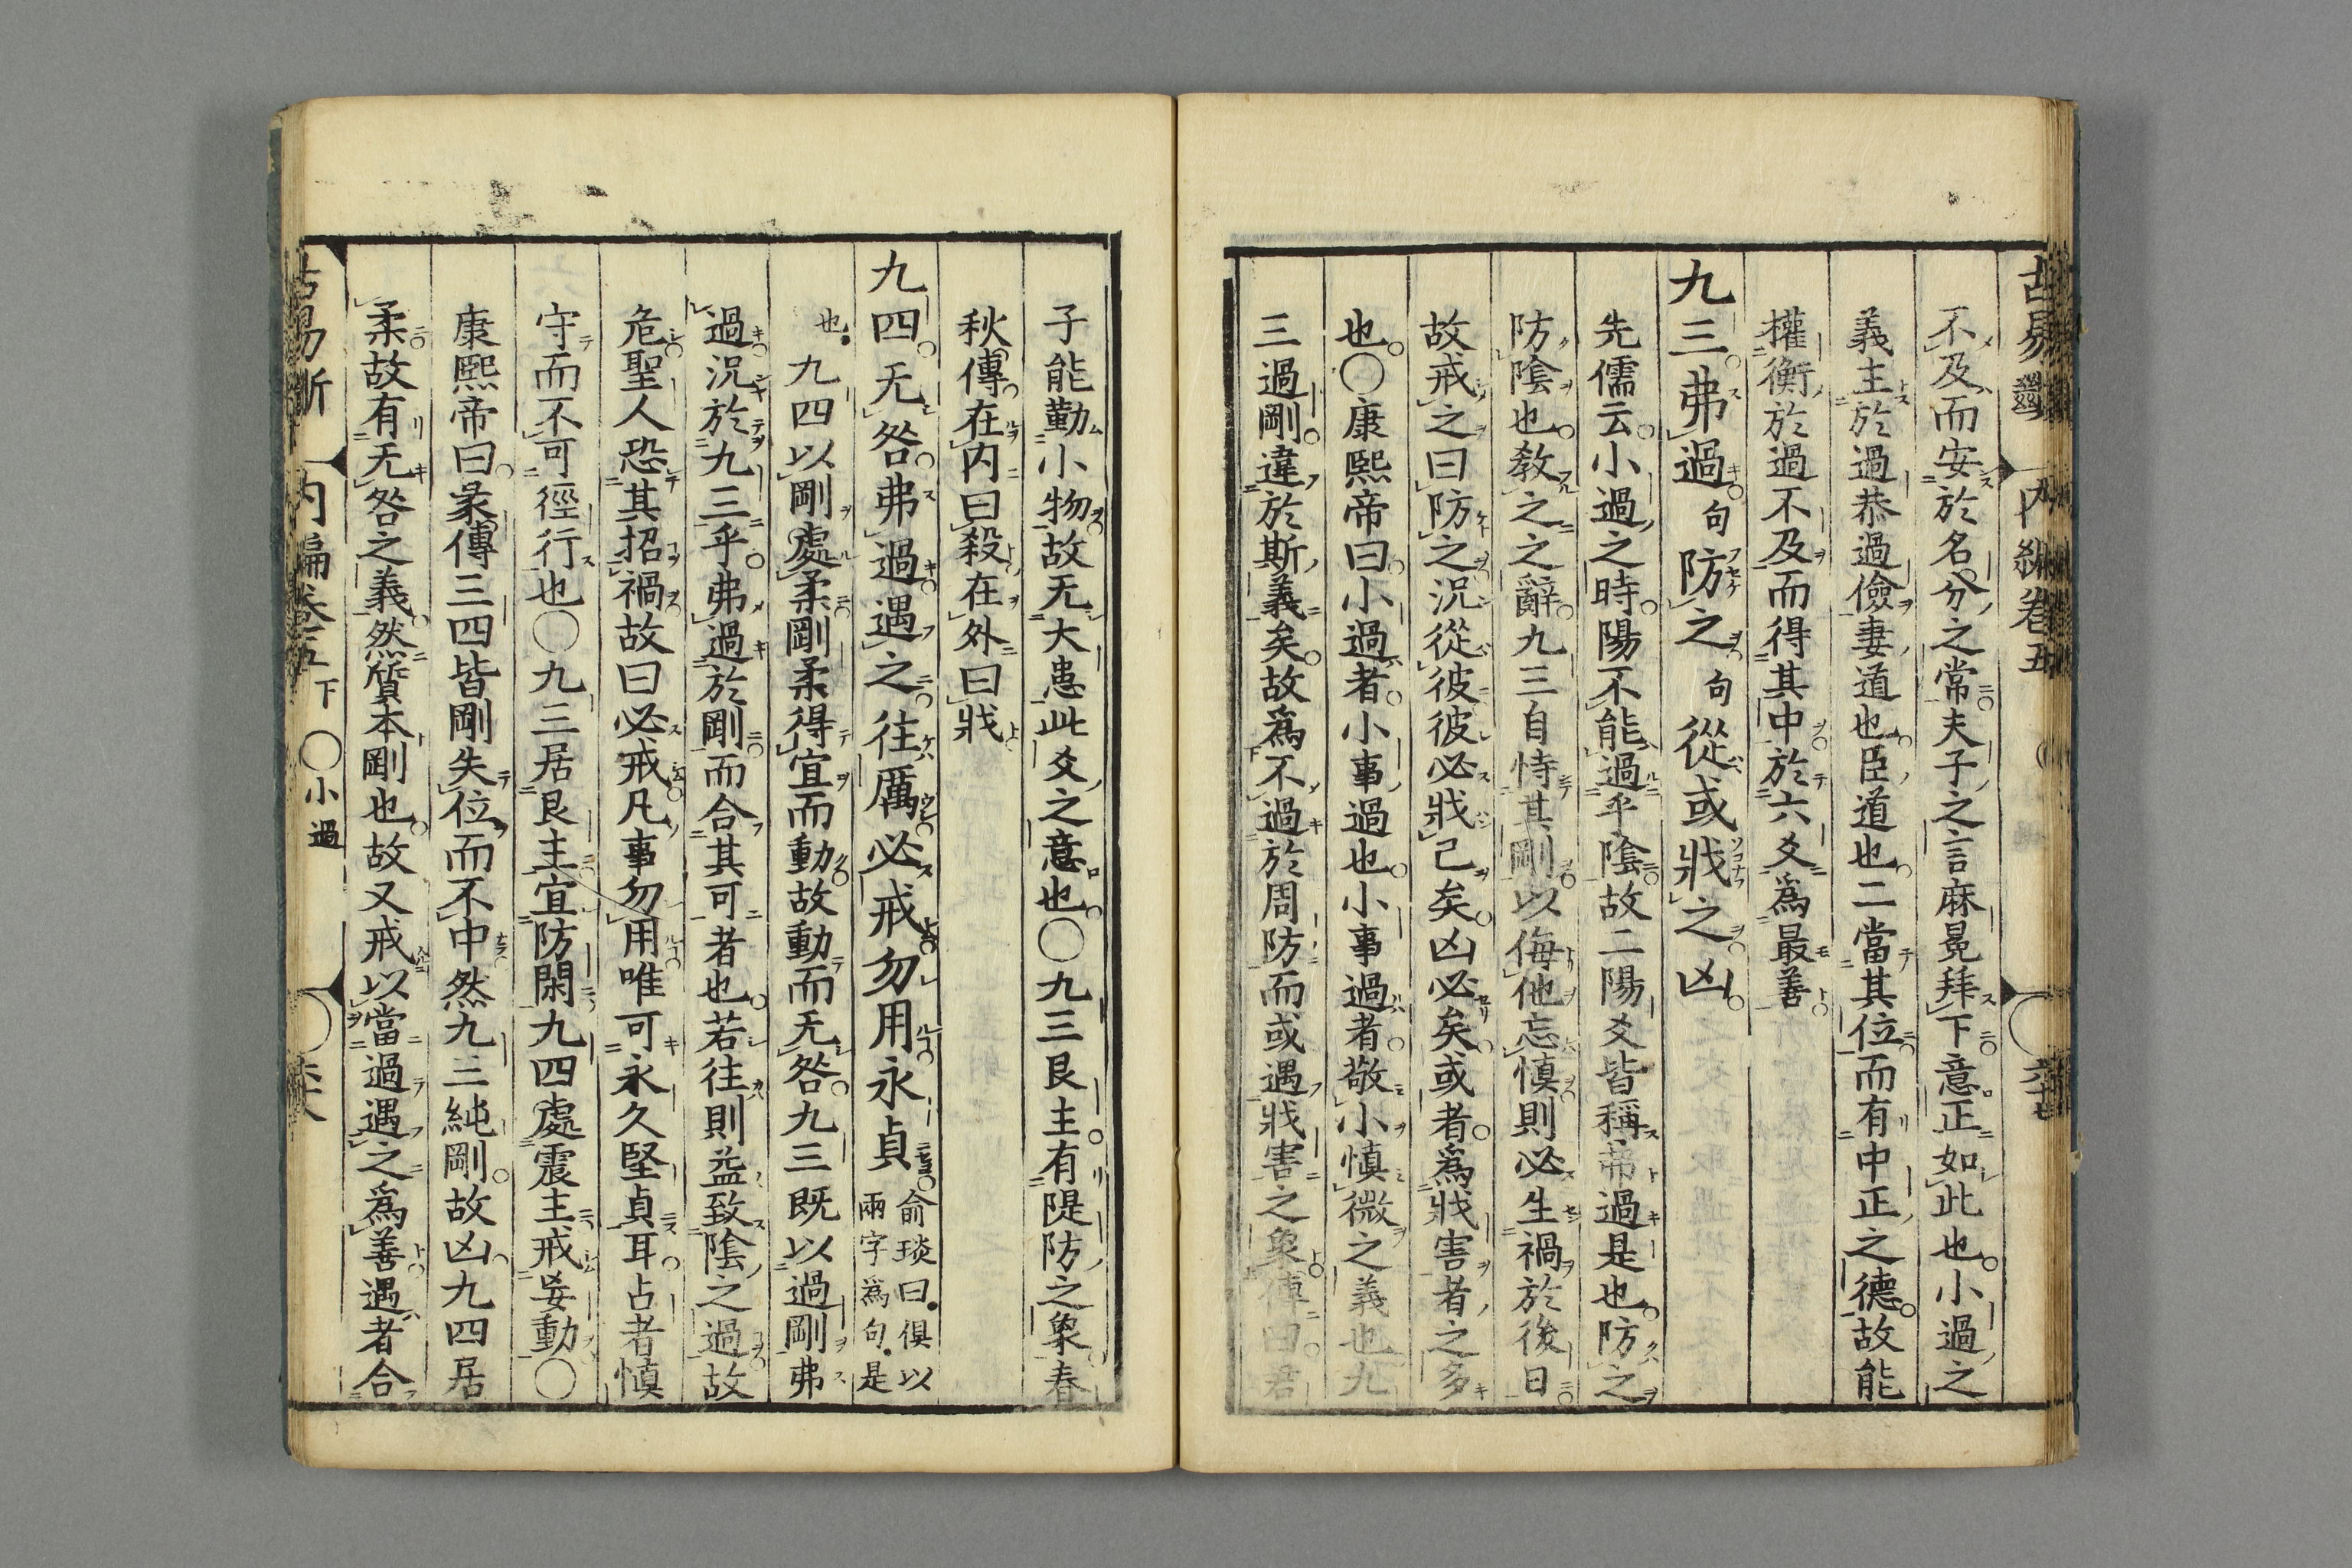 不及而安於名分之常夫子之言麻冕拜下意正如此也小過之
義主於過恭過儉妻道也臣道也二當其位而有中正之德故能
權衡於過不及而得其中於六爻為最善
九三弗過句防之句從或戕之凶
先儒云小過之時陽不能過乎陰故二陽爻皆稱弗過是也防之
防陰也教之之辭九三自恃其剛以侮他忘慎則必生禍於後日
故戒之曰防之況從彼彼必戕己矣凶必矣或者為戕害者之多
也〇康熙帝曰小過者小事過也小事過者敬小慎微之義也九
三過剛違於斯義矣故為不過於周防而或遇戕害之象傳曰君
子能勤小物故无大患此爻之意也〇九三艮主有隄防之象春
秋傳在内曰殺在外曰戕
九四无咎弗過遇之往厲必戒勿用永貞俞琰曰俱以兩字為句是
也九四以剛處柔剛柔得宜而動故動而无咎九三既以過剛弗
過況於九三乎弗過於剛而合其可者也若往則益致陰之過故
危聖人恐其招禍故曰必戒凡事勿用唯可永久堅貞耳占者慎
守而不可徑行也〇九三居艮主宜防閑九四處震主戒妄動〇
康熙帝曰彖傳三四皆剛失位而不中然九三純剛故凶九四居
柔故有无咎之義然質本剛也故又戒以當過遇之為善遇者合
易斷 内編卷五下 〇小過